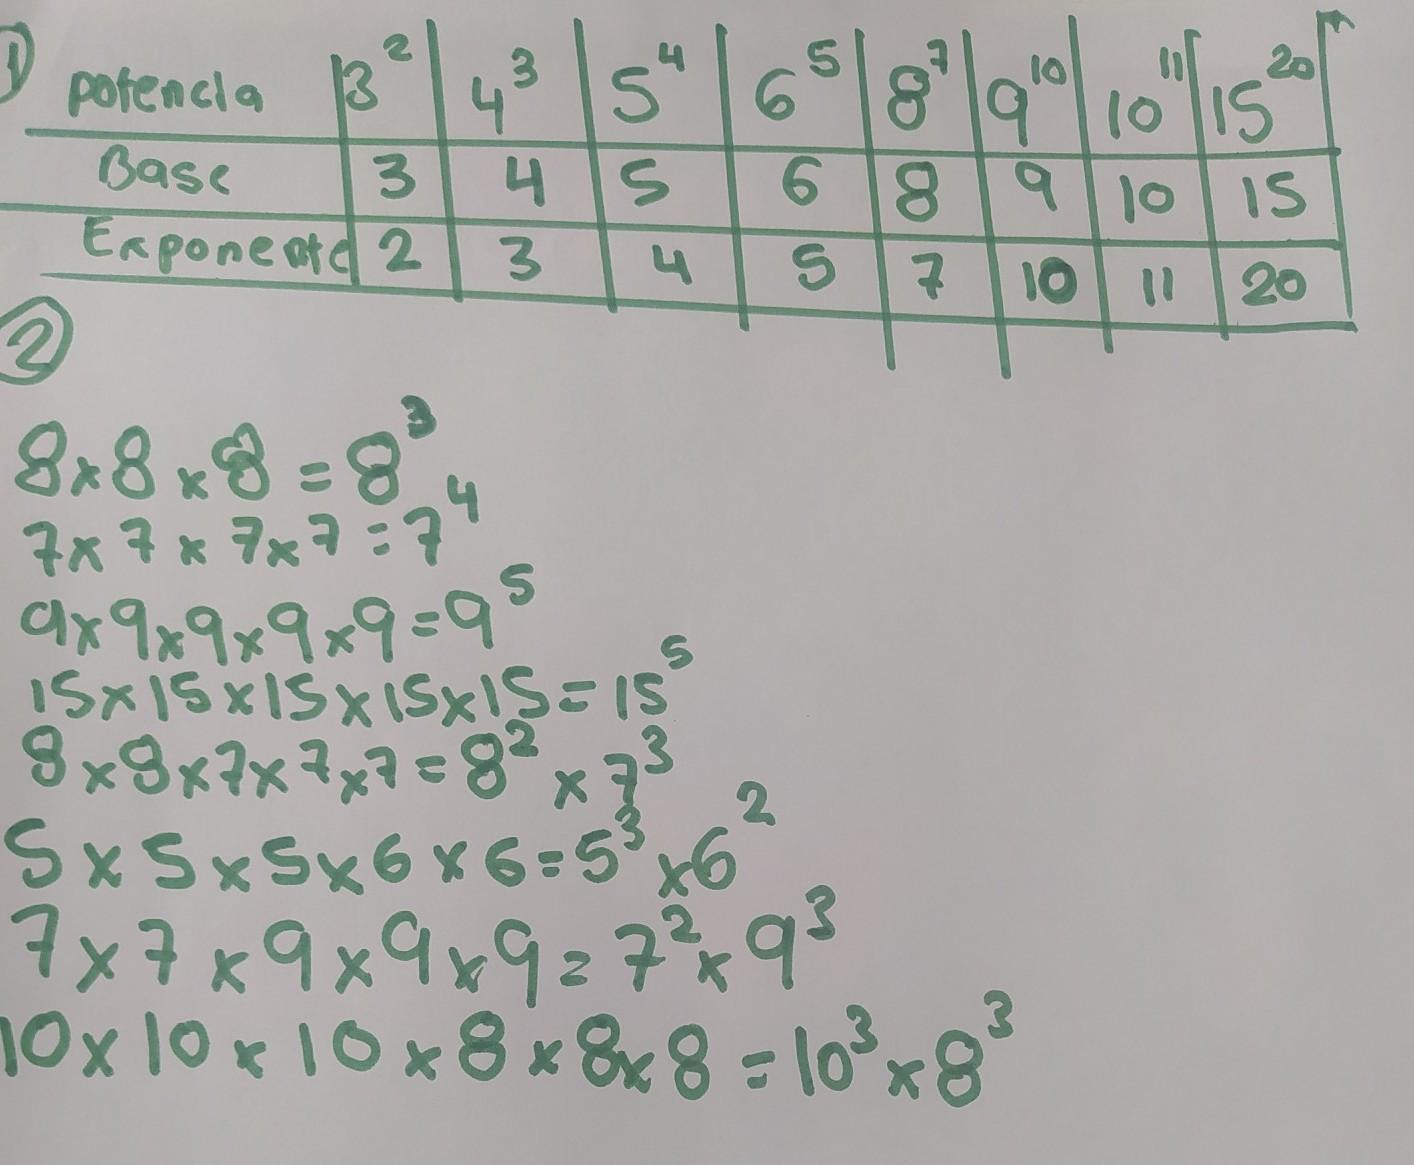 1 potencia 3² 4³ 5⁴ 6⁵ 8⁷ 9¹⁰ 10¹¹ 15²⁰
Base 3 4 5 6 8 9 10 15
Exponente 2 3 4 5 7 10 11 20
2
8x8x8=8³
7x7x7x7=7⁴
9x9x9x9x9=9⁵
15x15x15x15x15=15⁵
8x8x7x7x7=8²x7³
5x5x5x6x6=5³x6²
7x7x9x9x9=7²x9³
10x10x10x8x8x8=10³x8³